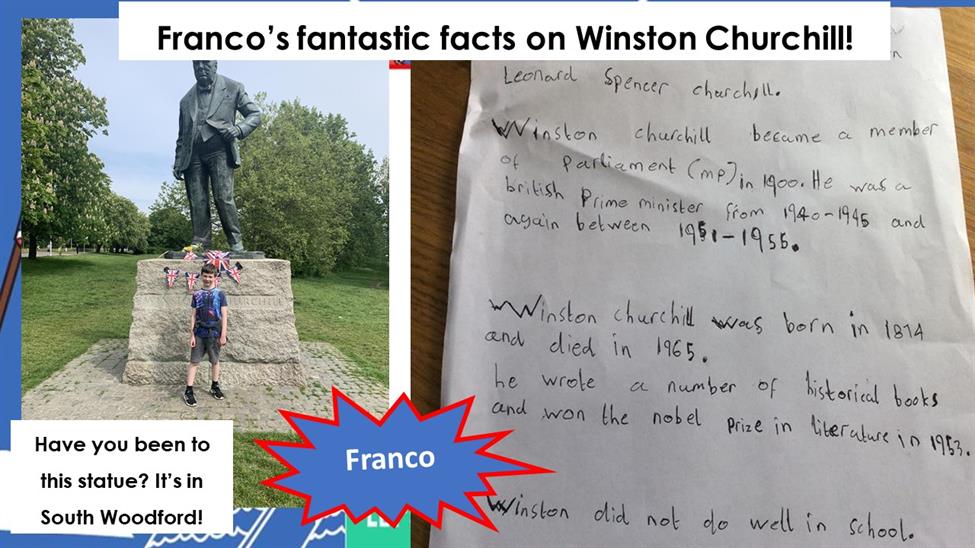 Franco's fantastic facts on Winston Churchill!
Leonard Spencer churchill.
Winston churchill became a member
of Parliament (MP) in 1900. He was a
british Prime minister from 1940-1945 and
again between 1951-1955.
Winston churchill was born in 1874
and died in 1965.
he wrote a number of historical books
and won the nobel prize in literature in 1953.
Winston did not do well in school.
Have you been to
this statue? It's in
South Woodford!
Franco